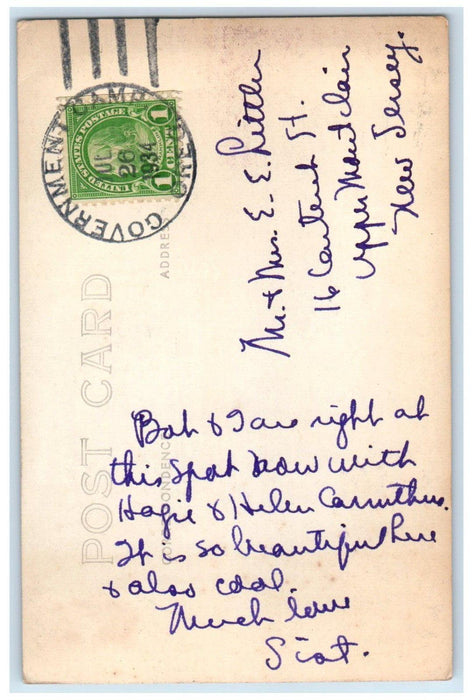 GOVERNMENT CAMP, ORE.
JUL
26
1934
UNITED STATES POSTAGE
1 CENT 1
POST CARD
ADDRESS
CORRESPONDENCE
Mr. & Mrs. E. E. Littler
16 St.
Upper Montclair
New Jersey.
Bob & I are right at
this spot now with
Hagie & Helen Carruthers.
It is so beautiful here
& also cool.
Much love